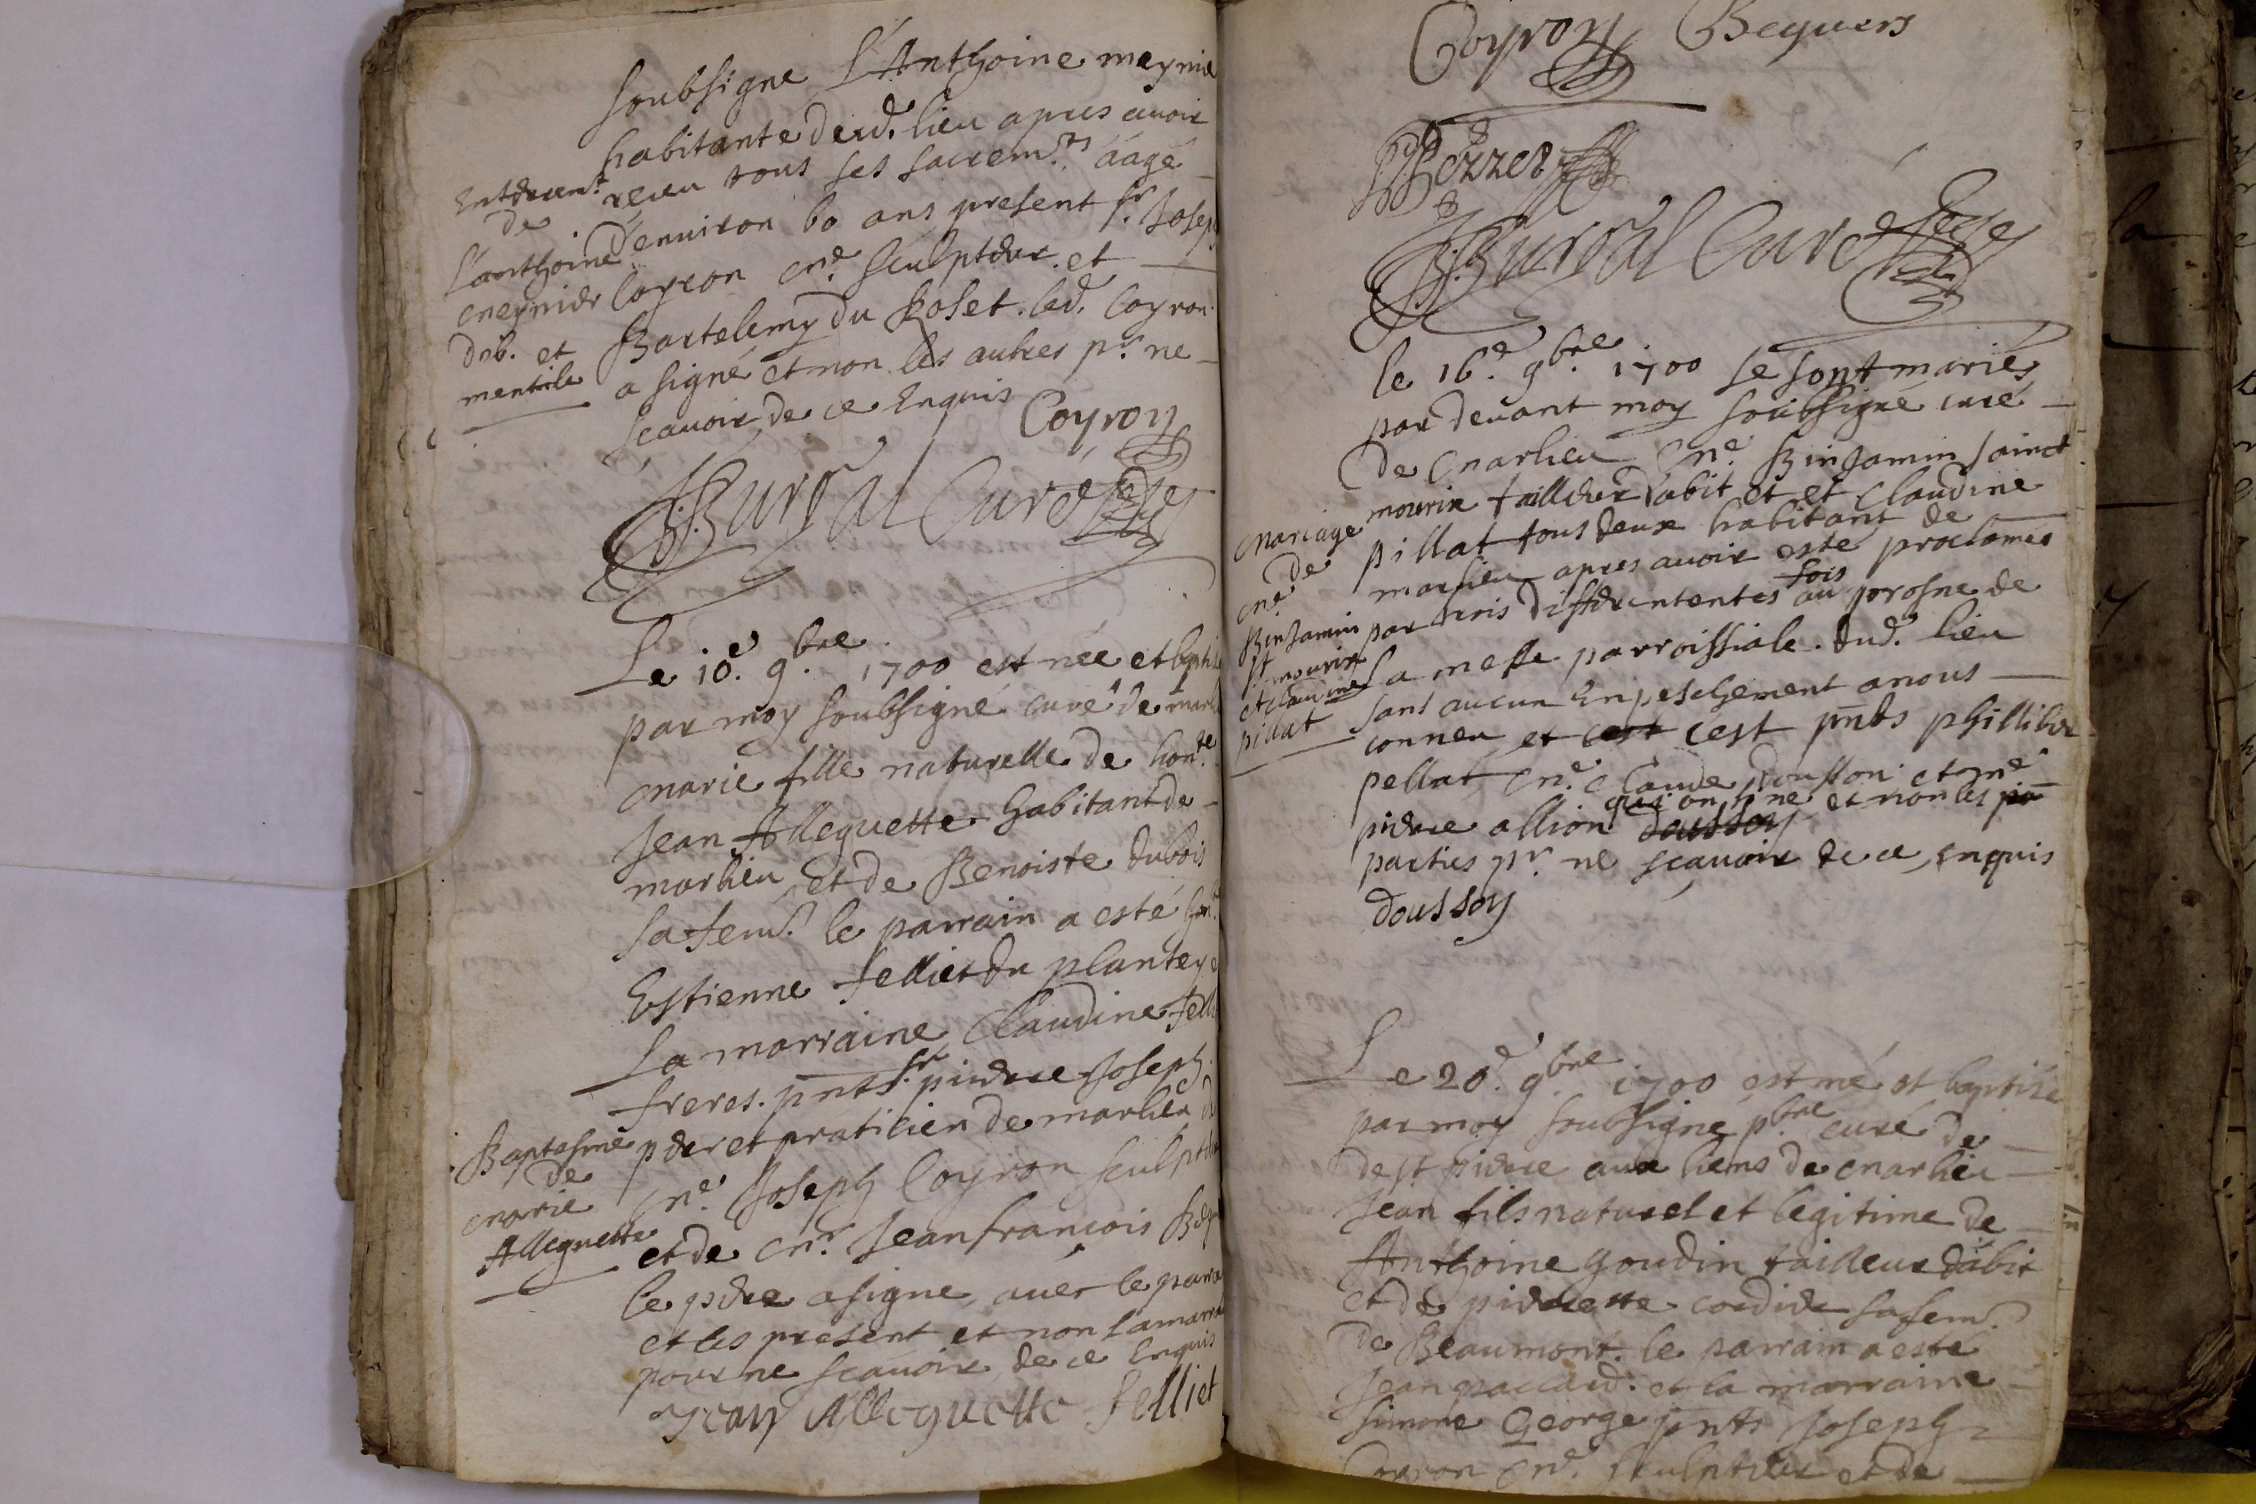 soubsigne L'Anthoine meynie
habitante dud. lieu apres avoir
receu tous ses sacrem.ts aagé
d'environ 60 ans present sr Josep
Coyron me sculpteur et
Bartelemy du Roset. led. Coyron
a signé et non les autres pr. ne
scavoir de ce Enquis
Coyron
Burdal Curé
Enterem.t
de
L'anthoine
meynier
dnb. et
mentile
Le 10.e 9.bre 1700 est née et baptis
par moy soubsigné curé de marl
marie fille naturelle de hon.te
Jean Alleguette habitant de
marlieu Et de Benoiste dubois
sa fem.e le parrain a esté hon.
Estienne felliet du plantey e
La marraine Claudine fell
freres. pnts sr pierre Joseph
pder et praticien de marlieu d
me Joseph Coyron sculpteu
et de mr Jeanfrancois Beg
le pere a signe avec le parra
et les present et non lamarra
pour ne scavoir de ce Enquis
Jean Alleguette felliet
Baptesme
de
marie
Alleguette
Coyron Beguers
Burdal Curé
le 16.e 9.bre 1700 se sont mariés
par devant moy soubsigné curé
de marlieu me Binjamin sainct
mourix tailleur d'abit et et Claudine
pillat tous deux habitant de
marlieu apres avoir esté proclamés
par trois differentes fois au prosne de
la messe parroissiale. dud. lieu
sans aucun Enpeschement a nous
conneu et cest c'est pnts phillibe
pellat me Claude Dousson et me
pierre allion qui on sne et non les pa
doussoy
parties pr. ne scavoir de ce enquis
doussoy
mariage
de
me
Binjamin
st mourix
et claudine
pillat
Le 20.e 9.bre 1700 est né et baptisé
par moy soubsigné pbre curé de
de st pierre aux liens de marlieu
Jean fils naturel et legitime de
Anthoine goudin tailleur d'abit
et de pierrette cordier sa fem.e
de Beaumont. le parrain a esté
Jean paccard. et la marraine
simone George pnts Joseph
Coyron me sculpteur et de